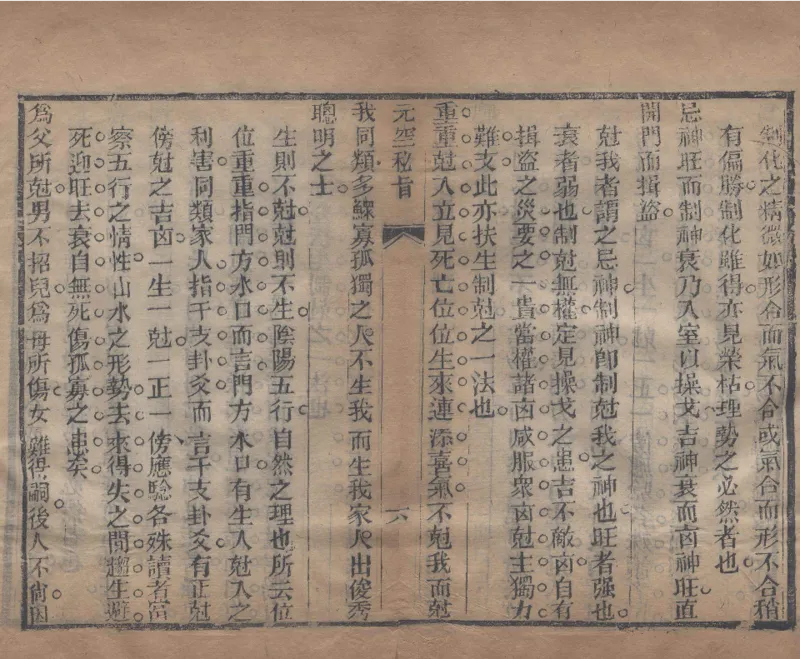 制化之精微如形合而氣不合或氣合而形不合稍
有偏勝制化雖得亦見榮枯理勢之必然者也
忌神旺而制神衰乃入室以操戈吉神衰而凶神旺直
開門而揖盜
尅我者謂之忌神制神卽制尅我之神也旺者强也
衰者弱也制尅無權定見操戈之患吉不敵凶自有
揖盜之災要之一貴當權諸凶咸服衆凶尅主獨力
難支此亦扶生制尅之一法也
重重尅入立見死亡位位生來連添喜氣不尅我而尅
元空秘旨
六
我同類多鰥寡孤獨之人不生我而生我家人出俊秀
聰明之士
生則不尅尅則不生陰陽五行自然之理也所云位
位重重指門方水口而言門方水口有生入尅入之
利害同類家人指干支卦爻而言干支卦爻有正尅
傍尅之吉凶一生一尅一正一傍應驗各殊讀者當
察五行之情性山水之形勢去來得失之間趨生避
死迎旺去衰自無死傷孤寡之患矣
爲父所尅男不招兒爲母所傷女難得嗣後人不肖因